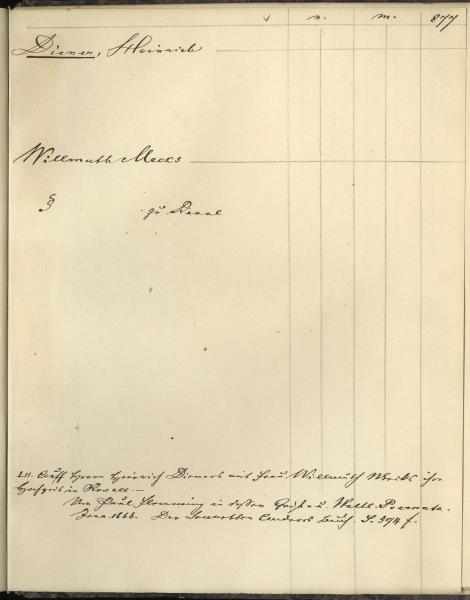 v. m. 877
Diener, Heinrich
Willmuth Meeks
§ zu Reval
LII. Auff Herrn Heinrich Dieners mit Frau Willmuth Meeks ihre
Hochzeit in Revall.—
Von Paul Flemming in dessen Geist u. Weltl. Poemata.
Jena 1666. Der Sonetten Anderes Buch. S. 594 f.